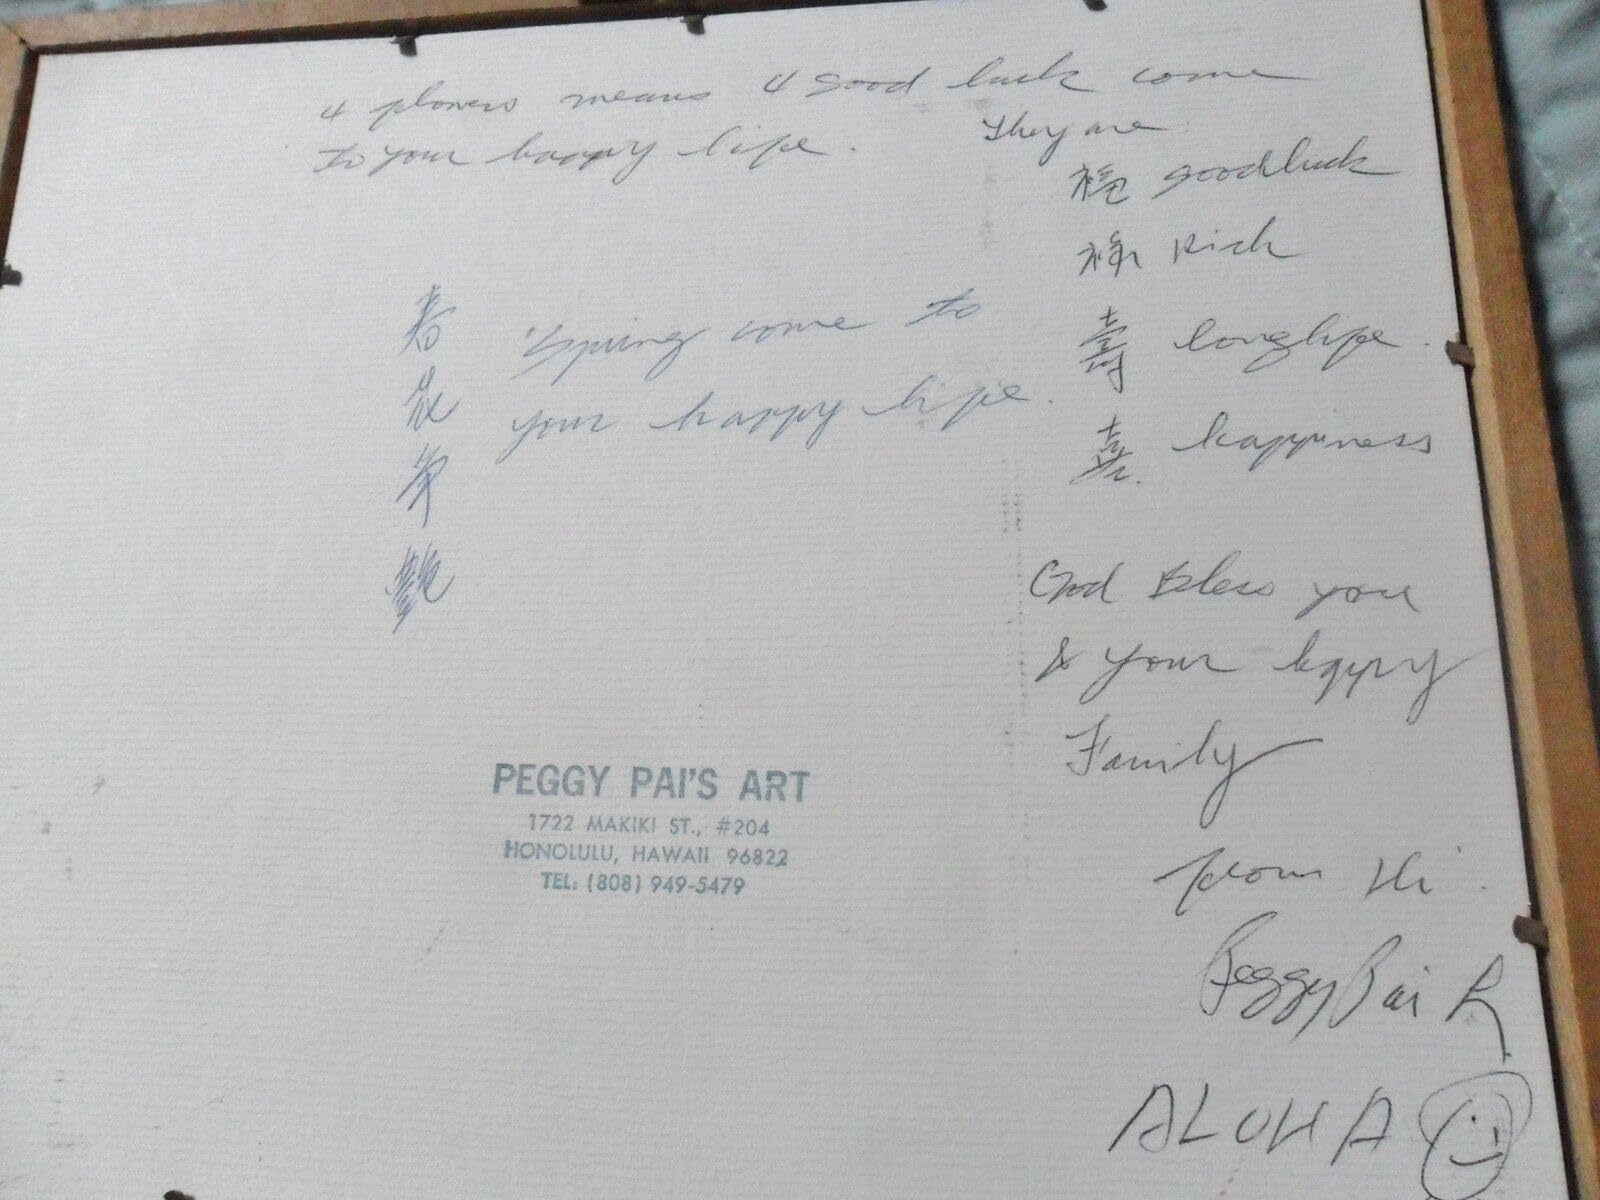 4 flowers means 4 good luck come
to your happy life.
They are
福 goodluck
祿 Rich
壽 longlife.
喜 happiness
春
Spring come to
your happy life.
年
艷
God Bless you
& your happy
Family
from Hi.
Peggy Pai
ALOHA
PEGGY PAI'S ART
1722 MAKIKI ST., #204
HONOLULU, HAWAII 96822
TEL: (808) 949-5479